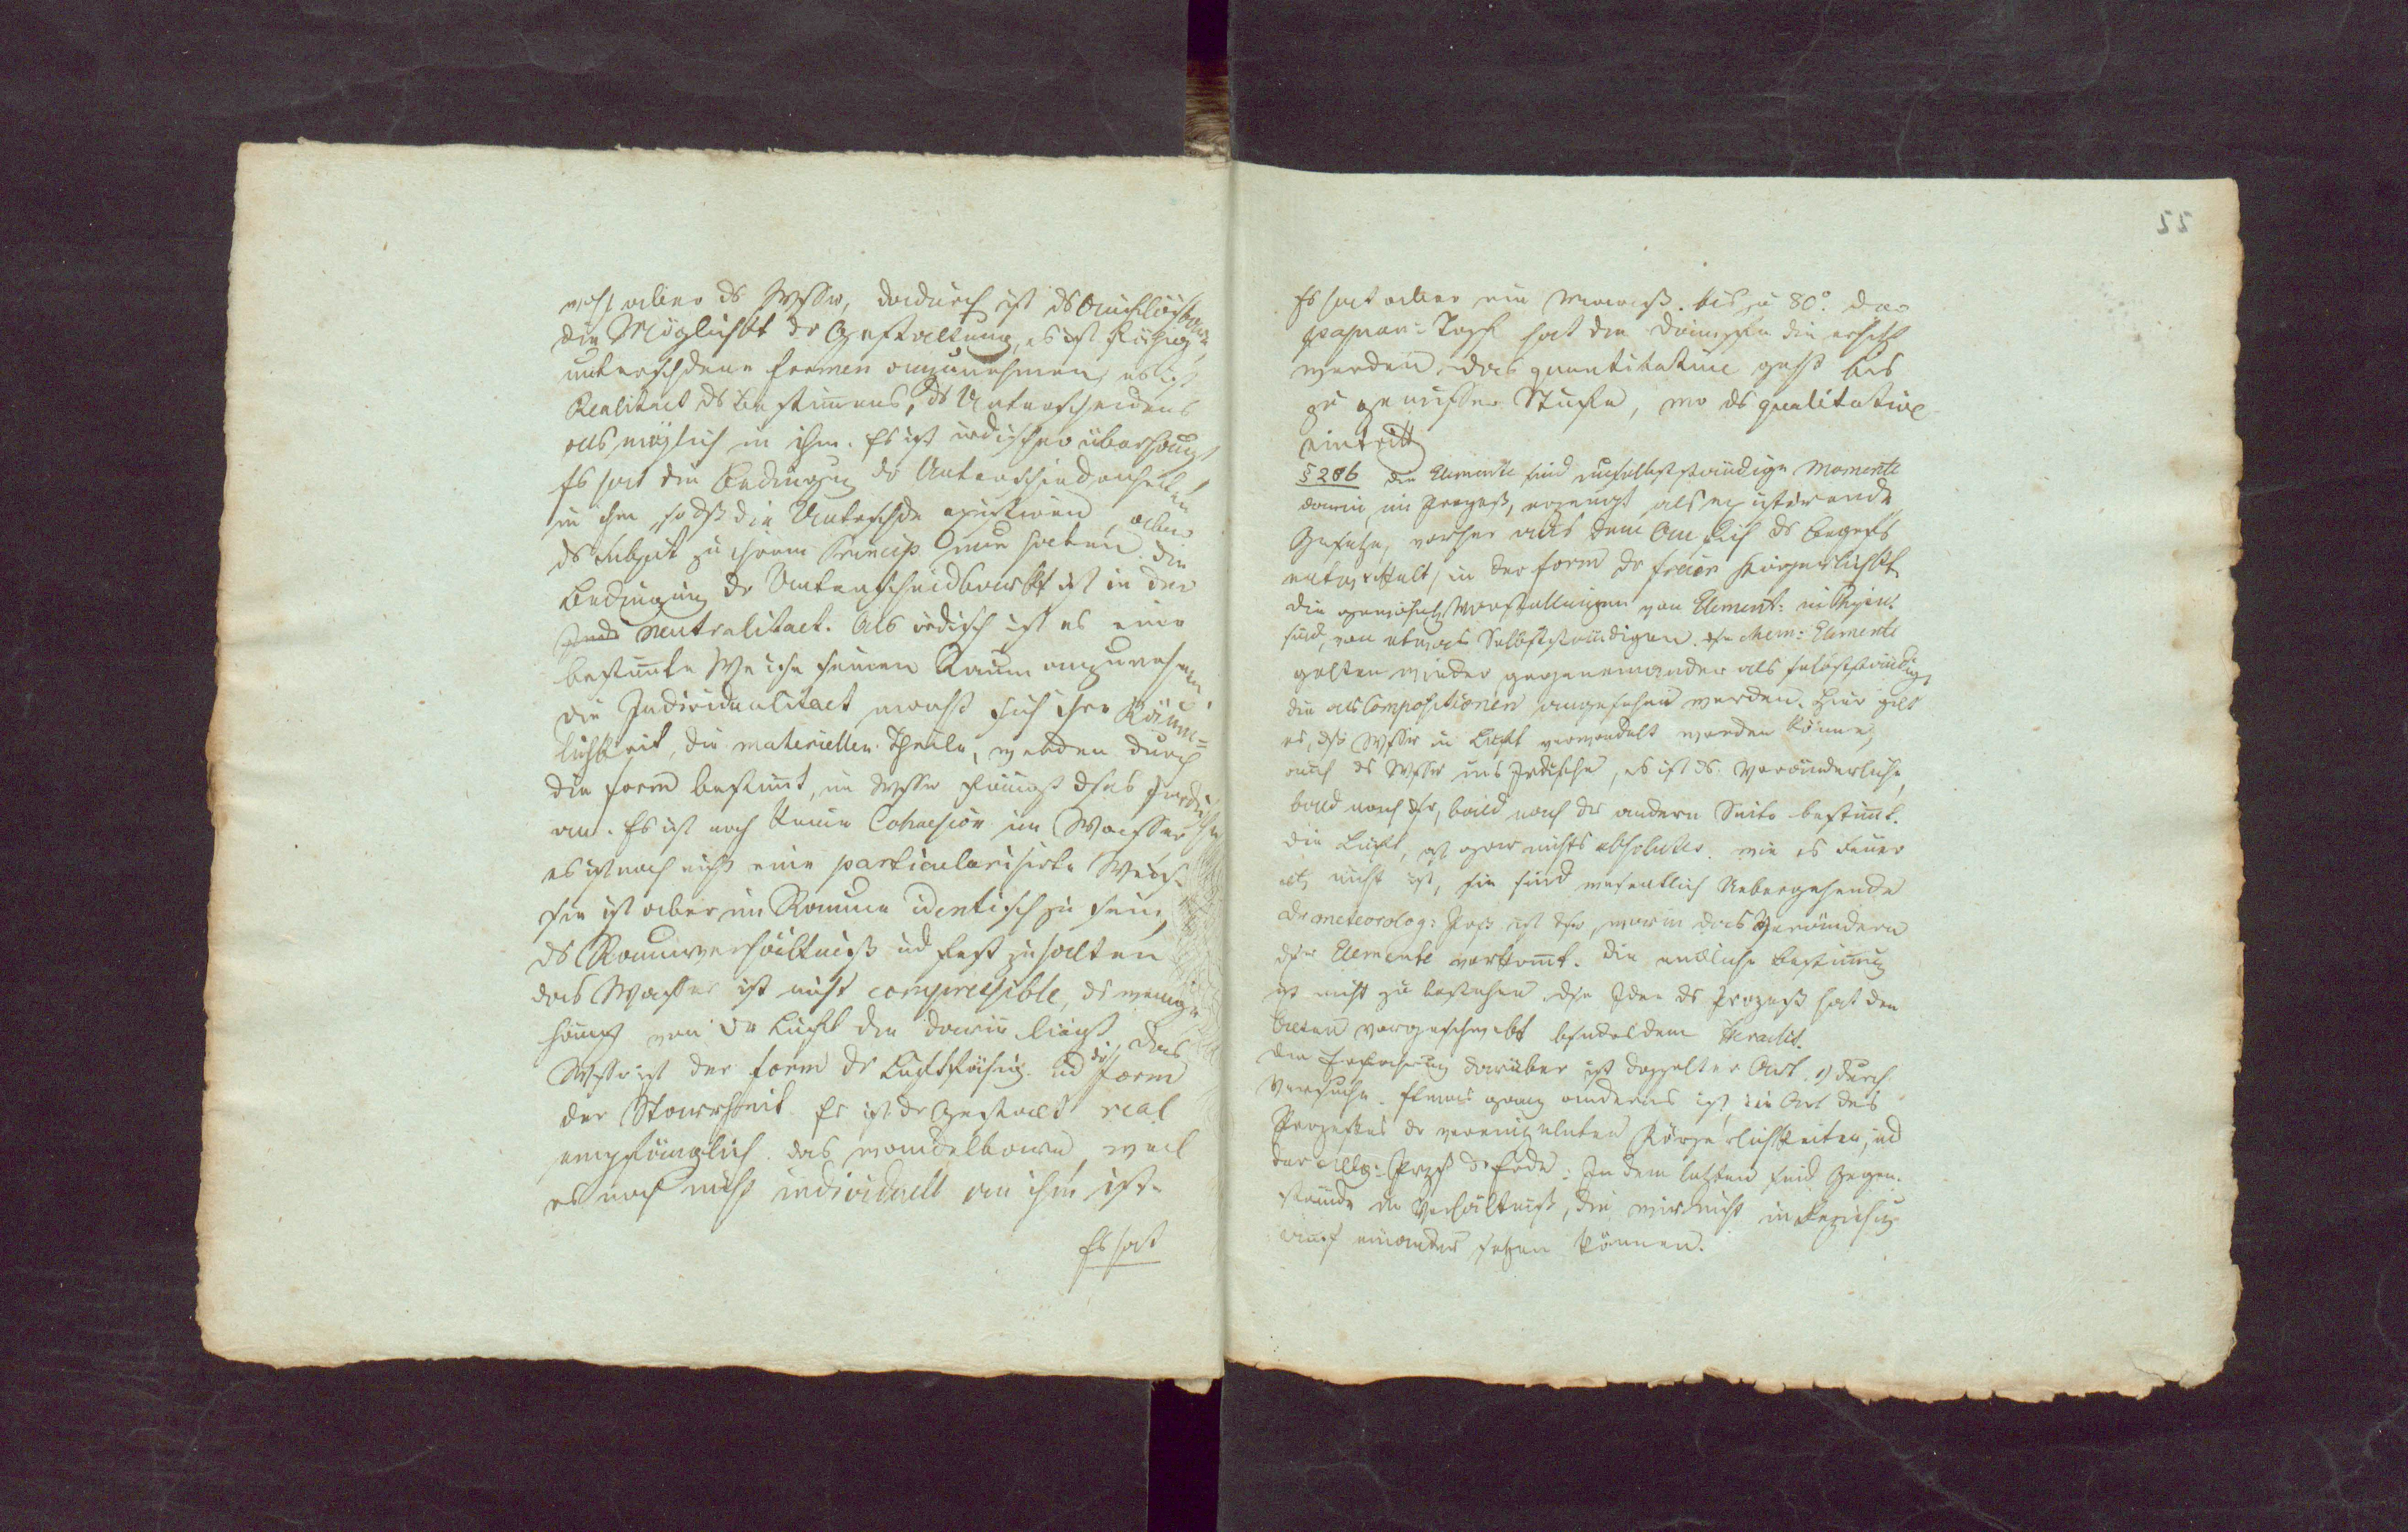 aber ds Wssr, dadurch ist ds Auflösbare
die Möglichkt dr Gestaltung, es ist fähig
unterschdene Formen anzunehmen, es ist
Realitaet ds Bestimmens, ds Unterscheidens
als möglich in ihm. Es ist irdisches überhaupt,
Es hat die Bedingung dr Unterschiedenheit
in ihm, so dß die Unterschde existiren, aber
ds Subject zu ihrem Princip haben. Die
Bedingung dr Unterscheidbarkt ist in der
Neutralitaet. Als irdisch ist es eine
bestimmte Weise seinen Raum anzunehmen
die Individualitaet macht sich ihre Räum=
lichkeit, die materiellen Theile, werden durch
die Form bestimmt, im Wssr fängt dses
an. Es ist noch keine Cohaesion im Wasser
es ist noch nicht eine particularisirte Weise
sie ist aber im Raume identisch zu sein,
ds Raumverhältniß und fest zu halten
das Wasser ist nicht compressible, ds wenige
hängt von dr Luft die darin liegt, das
Wssr ist der Form dr Luft fähig und die Form
der Starrheit. Es ist dr Gestalt real
empfänglich. das wandelbare, weil
es noch nicht individuell an ihm ist.
Es hat
55
Es hat aber ein Maaß. bis zu 80°. Der
papian: Topf hat die Dämpfe die erhitzt
werden, das quantitative geht bis
zu gewisser Stufe, wo ds qualitative
eintritt
§ 286 Die Elemente sind unselbstständige Momente
darin, im Prozeß, erzeugt als existirende
Gesetze, vorher aus dem An sich ds Begrfs
entwickelt, in der Form dr freien Körperlichkt.
die gewöhnl. Vorstellungen von Element:
sind, von etwas Selbstständigem. Die chem: Elemente
gelten wieder gegeneinander als selbstständig,
die als Compositionen angesehen werden. Hier gilt
es, dß Wssr in Luft verwandelt werden könne,
auch ds Wssr ins Irdische, es ist ds Veränderliche,
bald nach dsr, bald nach der andern Seite bestimmt.
Die Luft, ist gar nichts absolutes. wie es Feuer
etc nicht ist, sie sind wesentlich Uebergehende
Dr meteorolog: Prozß ist dsr, worin das Verändern
dsr Elemente vorkommt. Die endliche Bestimmung
ist nicht zu bestehen. Dse Idee ds Prozeß hat den
Alten vorgeschwebt besondrs dem Heraclit.
Die Erfahrung darüber ist doppelter Art. 1) durch
Versuche. Etwas ganz anderes ist, die Art des
Prozesses dr vereinzelnten Körperlichkeiten, und
der allg: Przß dr Erde: In dem letzten sind Gegen-
stände im Verhältniß, die wir nicht in Beziehung
auf einander setzen können.